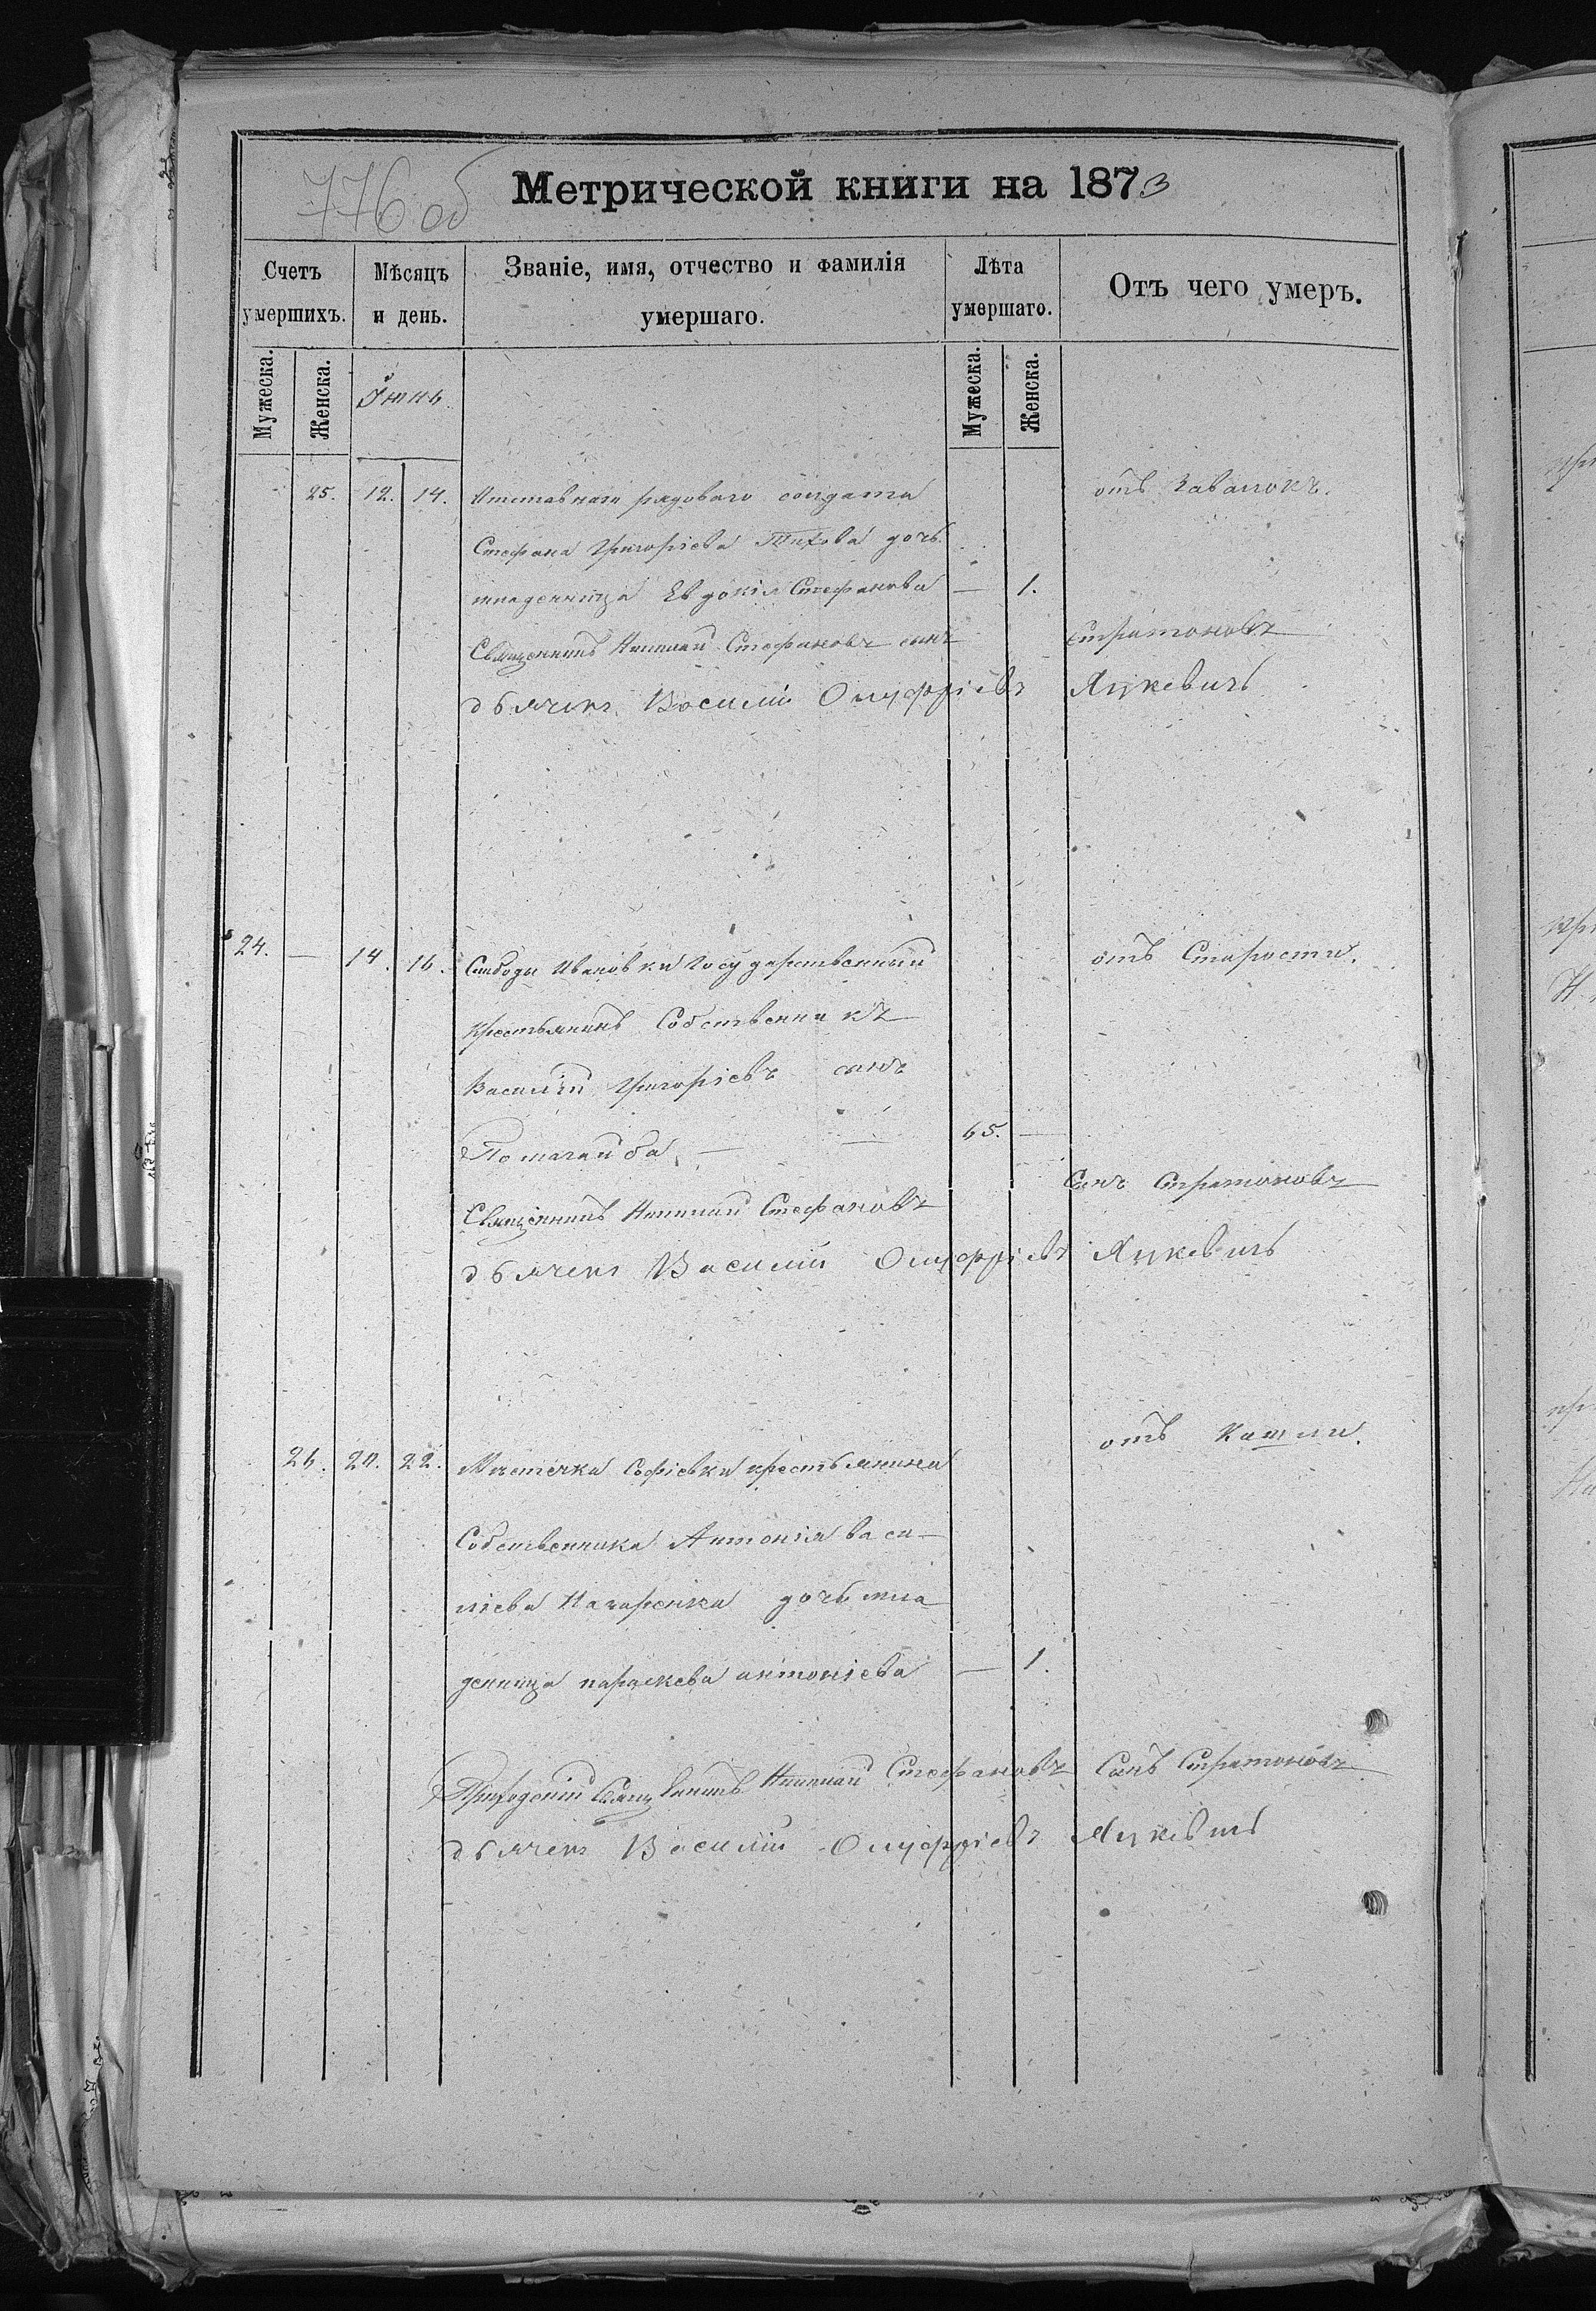 776 об
Метрической книги на 1873
Счетъ умершихъ.
Мѣсяцъ и день.
Званіе, имя, отчество и фамилія умершаго.
Лѣта умершаго.
Отъ чего умеръ.
Мужеска.
Женска.
Іюнь.
Мужеска.
Женска.
25. 12. 14. Отставнаго рядоваго солдата отъ Завалокъ.
Стефана Григоріева Титова дочь
младеница Евдокія Стефанова — 1.
Священникъ Николай Стефановъ сынъ Стратоновъ
дьячекъ Василій Онуфріевъ Яцкевичъ
24. — 14. 16. Слободы Ивановки Государственный отъ Старости.
крестьянинъ Собственникъ
Василій Григоріевъ сынъ
Помагайба — — 65. —
Священникъ Николай Стефановъ Сынъ Стратоновъ
дьячекъ Василій Онуфріевъ Яцкевичъ
26. 20. 22. Мѣстечка Софіевки крестьянина отъ Кашли.
Собственника Антонія Васи-
ліева Назаренка дочь мла
деница параскева антоніева — 1.
Приходскій Священникъ Николай Стефановъ Сынъ Стратоновъ
дьячекъ Василій Онуфріевъ Яцкевичъ